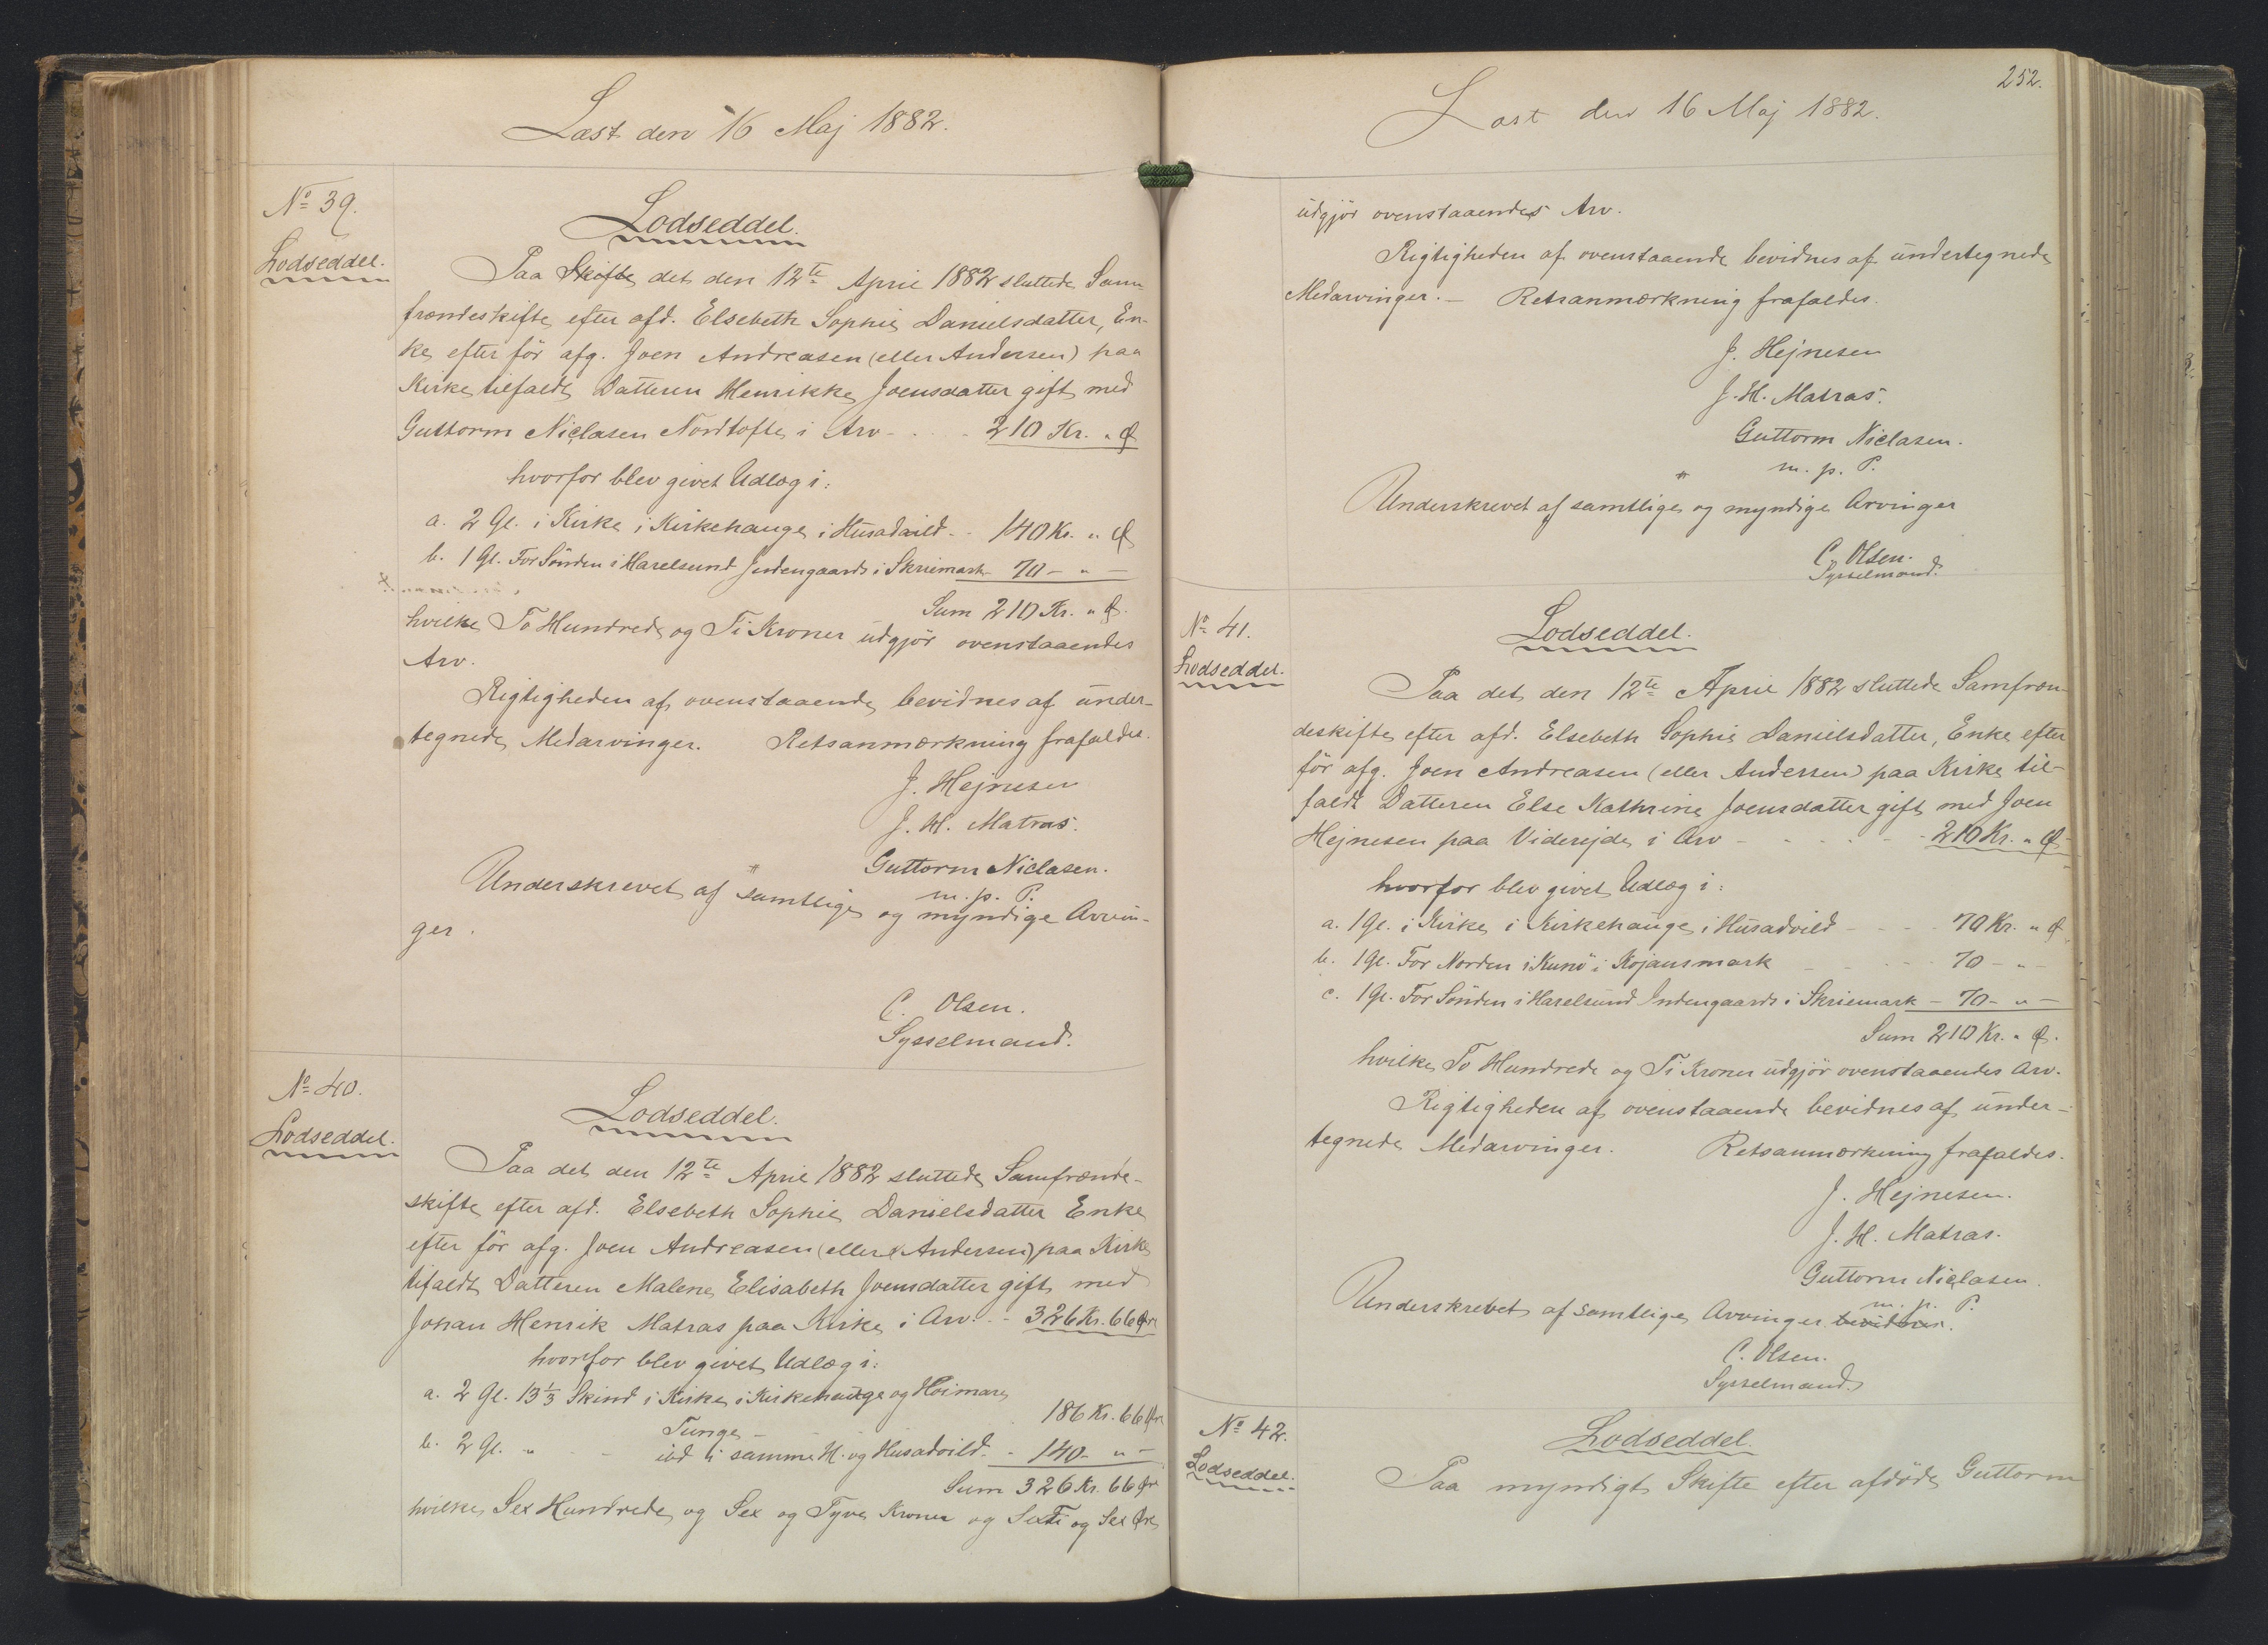 Læst den 16 Maj 1882.
No 39.
Lodseddel.
Lodseddel.
Paa Skifte det den 12te April 1882 sluttede Sam-
frændeskifte efter afd. Elsebeth Sophie Danielsdatter, En-
ke efter før afg. Joen Andreasen (eller Andersen) paa
Kirke tilfaldt Datteren Henrikke Joensdatter gift med
Guttorm Niclasen Nordtofte i Arv - . . . - 210 Kr. " Ø
hvorfor blev givet Udlæg i:
a. 2 Gl. i Kirke i Kirkehauge i Husadvild - - 140 Kr. " Ø
b. 1 Gl. For Sönden i Harelsund Indengaards i Skriemark - 70 - " -
Sum 210 Kr. " Ø.
hvilke To Hundrede og Ti Kroner udgjör ovenstaaendes
Arv.
Rigtigheden af ovenstaaende bevidnes af under-
tegnede Medarvinger. Retsanmærkning frafaldes.
J. Hejnesen
J. H. Matras.
Guttorm Niclasen.
m. p. P.
Underskrevet af samtlige og myndige Arvin-
ger.
C. Olsen.
Sysselmand.
No 40.
Lodseddel.
Lodseddel.
Paa det den 12te April 1882 sluttede Samfrænde-
skifte efter afd. Elsebeth Sophie Danielsdatter Enke
efter för afg. Joen Andreasen (eller Andersen) paa Kirke
tifaldt Datteren Malene Elisabeth Joensdatter gift med
Johan Henrik Matras paa Kirke i Arv. - - 326 Kr. 66 Ør
hvorfor blev givet Udlæg i:
a. 2 Gl. 13 1/3 Skind i Kirke i Kirkehauge og Höimare
Tunge - 186 Kr. 66 Øre
b. 2 Gl. " - - ibd i samme H. og Husadvild. - 140 - " -
Sum 326 Kr. 66 Ør
hvilke Sex Hundrede og Sex og Tyve Kroner og SexTi og Sex Øre
252.
Læst den 16 Maj 1882.
udgjör ovenstaaendes Arv.
Rigtigheden af ovenstaaende bevidnes af undertegnede
Medarvinger. - Retsanmærkning frafaldes.
J. Hejnesen
J. H. Matras.
Guttorm Niclasen.
m. p. P.
Underskrevet af samtlige og myndige Arvinger
C. Olsen.
Sysselmand.
No 41.
Lodseddel.
Lodseddel.
Paa det den 12te April 1882 sluttede Samfræn-
deskifte efter afd. Elsebeth Sophie Danielsdatter, Enke efter
för afg. Joen Andreasen (eller Andersen) paa Kirke til-
faldt Datteren Else Kathrine Joensdatter gift med Joen
Hejnesen paa Viderejde i Arv - . . . - 210 Kr. " Ø
hvorfor blev givet Udlæg i:
a. 1 Gl. i Kirke i Kirkehauge i Husadvild - - - 70 Kr. " Ø
b. 1 Gl. For Norden i Kunö i Kojansmark - - - 70 - " -
c. 1 Gl. For Sönden i Harelsund Indengaards i Skriemark - 70 - " -
Sum 210 Kr. " Ø.
hvilke To Hundrede og Ti Kroner udgjör ovenstaaendes Arv.
Rigtigheden af ovenstaaende bevidnes af under-
tegnede Medarvinger. Retsanmærkning frafaldes.
J. Hejnesen.
J. H. Matras.
Guttorm Niclasen.
m. p. P.
Underskrevet af samtlige Arvinger bevidnes.
C. Olsen.
Sysselmand
No 42.
Lodseddel.
Lodseddel.
Paa myndigt Skifte efter afdöde Guttorm